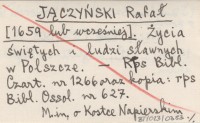 JĄCZYŃSKI Rafał
[1659 lub wcześniej]. Życia
świętych i ludzi sławnych
w Polszcze. — Rps Bibl.
Czart. nr 1266 oraz kopia: rps
Bibl. Ossol. nr 627.
M.in. o Kostce Napierskim